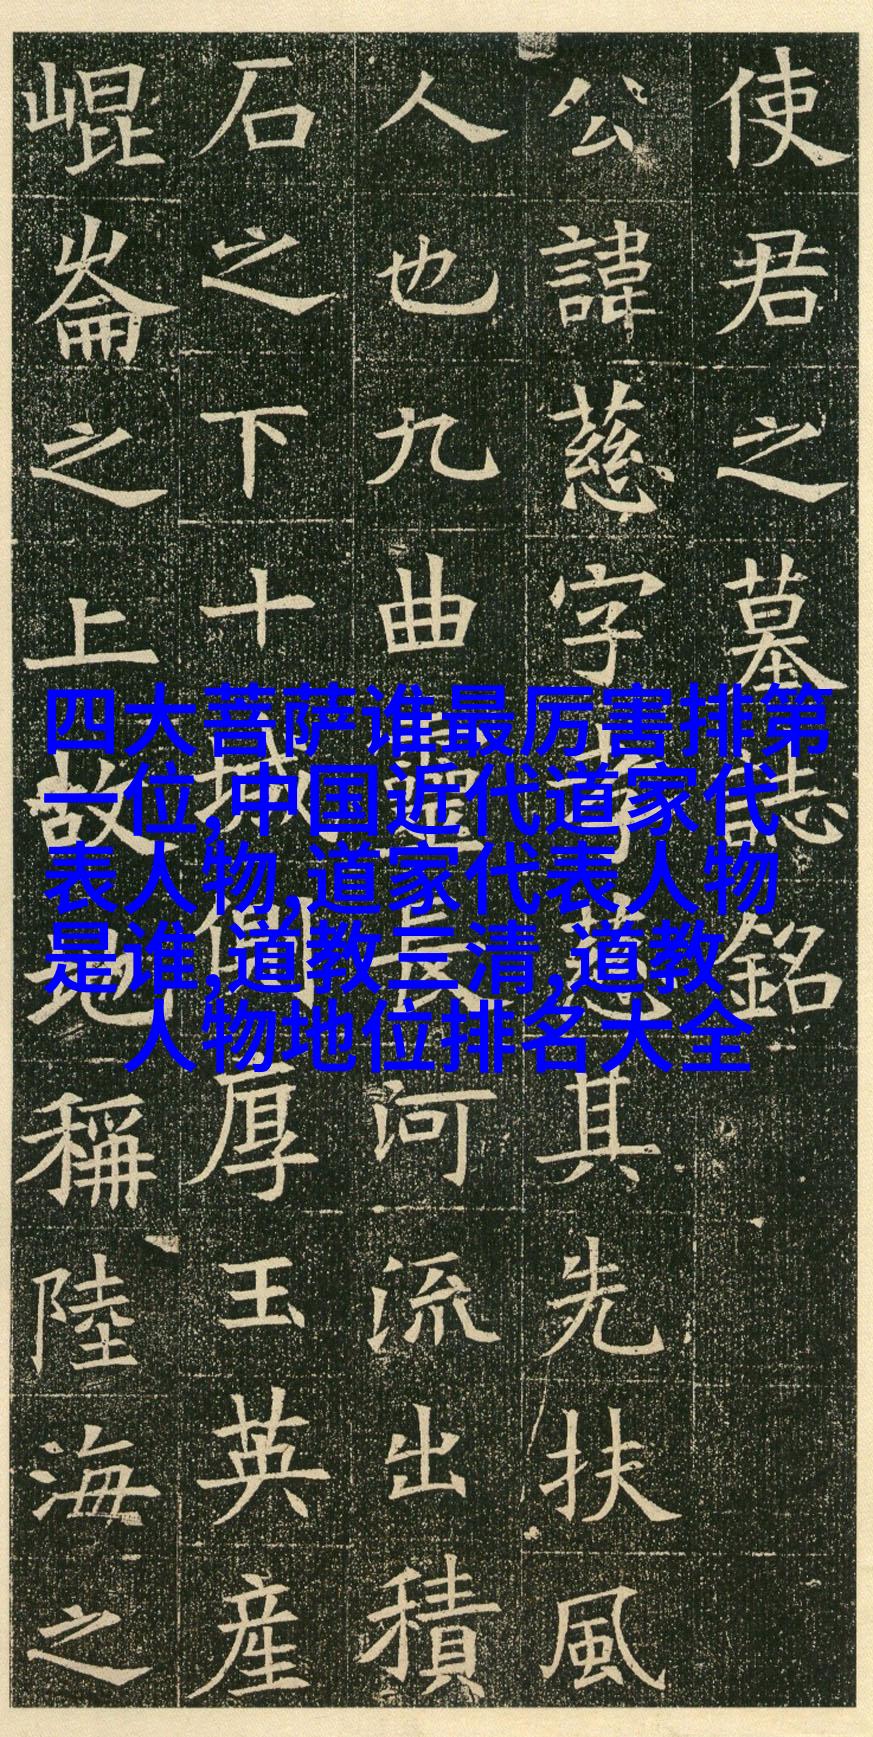 使君之墓誌銘
公諱慈字孝慈其先扶風
人也九曲靈長河流出積
石之下十城側厚玉英産
崐崙之上故地稱陸海之
四大菩萨谁最厉害排第
一位,中国近代道家代
表人物,道家代表人物
是谁,道教三清,道教
人物地位排名大全